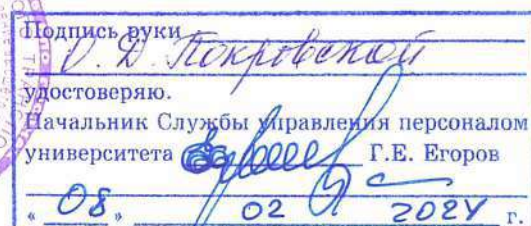 Подпись руки
О. Д. Покровской
удостоверяю.
Начальник Службы управления персоналом
университета Г.Е. Егоров
« 08 » 02 2024 г.